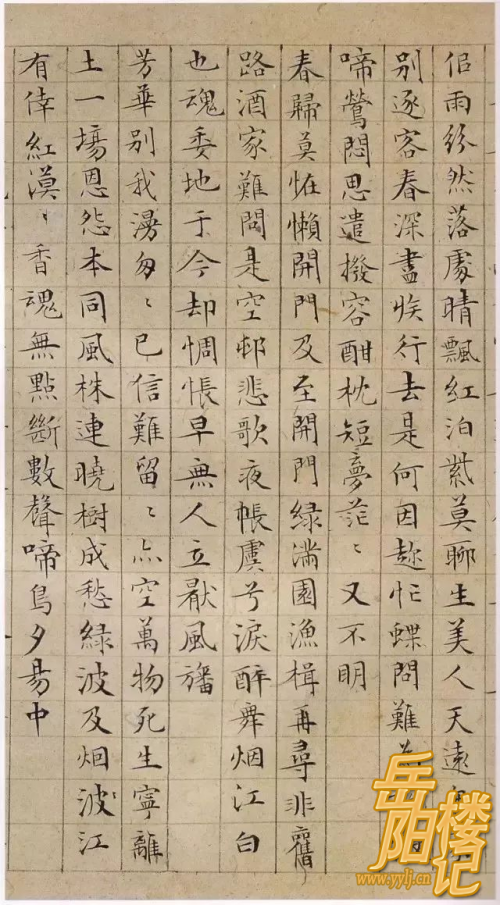 佀雨紛然落處晴飄紅泊紫莫聊生美人天遠
別逐客春深盡族行去是何因趂忙蝶問難為
啼鶯悶思遣撥容酣枕短夢茫〻又不明
春歸莫恠懶開門及至開門綠滿園漁楫再尋非舊
路酒家難問是空邨悲歌夜帳虞兮淚醉舞烟江白
也魂委地于今却惆悵早無人立厭風旛
芳華別我漫匆〻已信難留〻亦空萬物死生寧離
土一場恩怨本同風株連曉樹成愁綠波及烟波江
有倖紅漠〻香魂無點斷數聲啼鳥夕昜中
岳阳楼记
www.yylj.cn